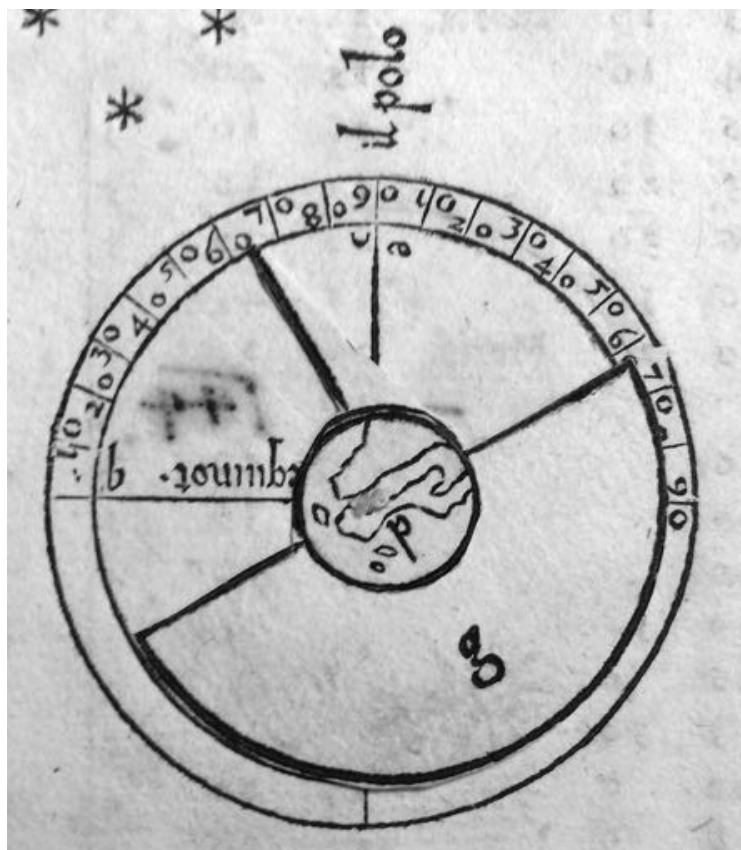 il polo
10 20 30 40 50 60 70 80 90 0 10 20 30 40 50 60 70 90
c e
equinot. b
a